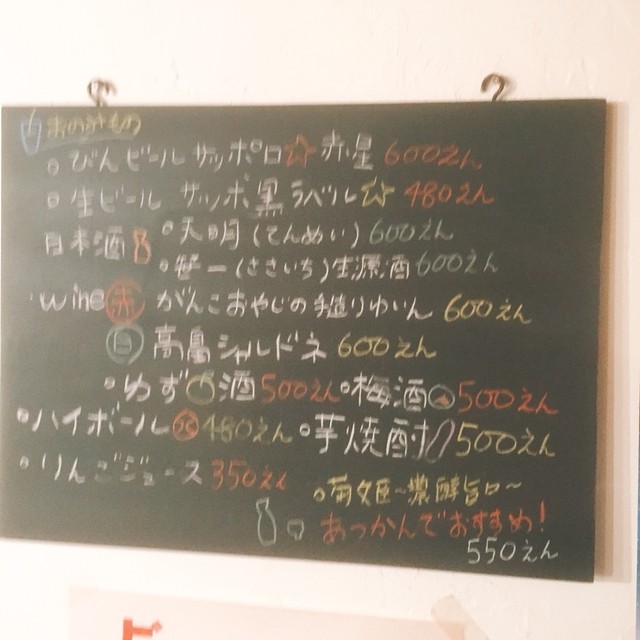 おのみもの
・びんビール サッポロ☆赤星 600えん
・生ビール サッポ黒ラベル☆ 480えん
日本酒 ・天明(てんめい) 600えん
・笹一(ささいち)生源酒 600えん
・wine 赤 がんこおやじの手造りわいん 600えん
白 高畠シャルドネ 600えん
・ゆず酒 500えん ・梅酒 500えん
・ハイボール 480えん ・芋焼酎 500えん
・りんごジュース 350えん
・菊文〜濃醇旨口〜
あつかんでおすすめ!
550えん